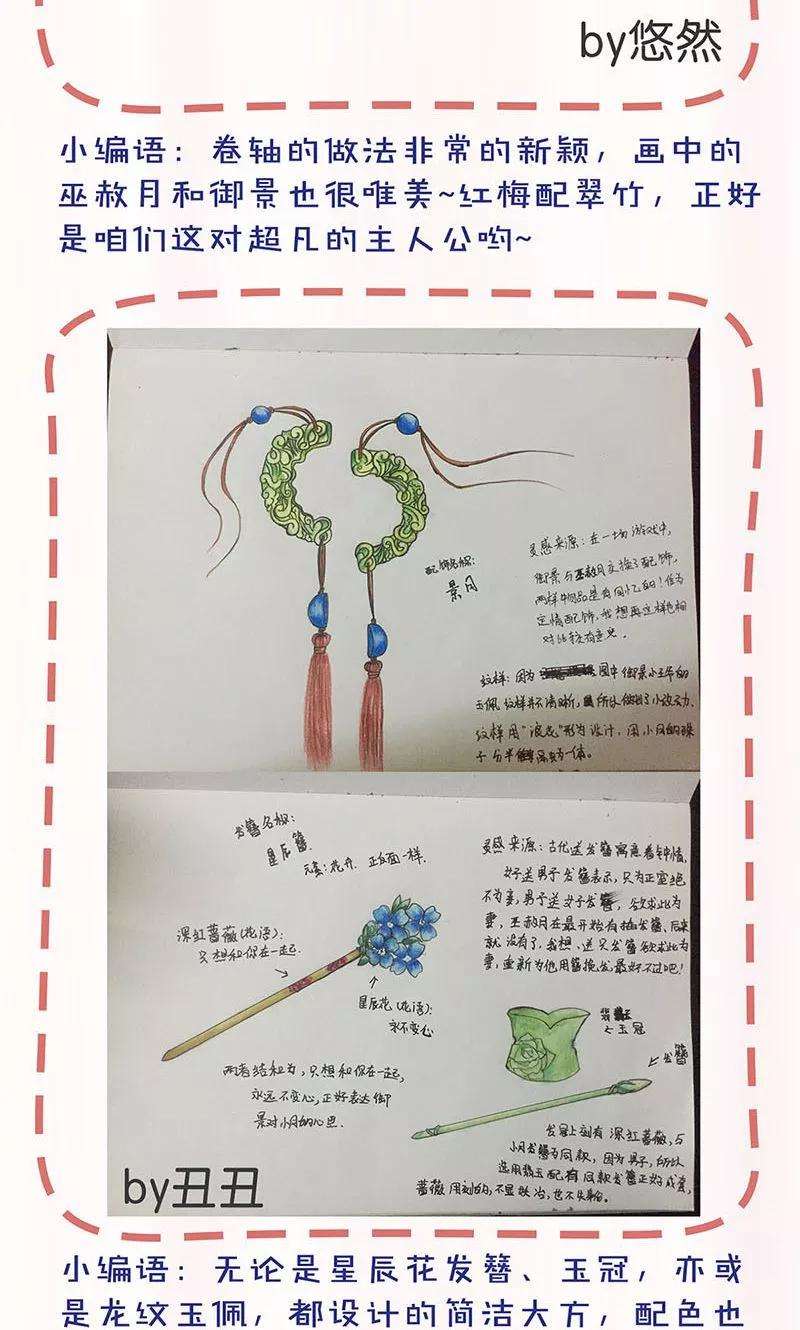 by悠然
小编语：卷轴的做法非常的新颖，画中的
巫赦月和御景也很唯美~红梅配翠竹，正好
是咱们这对超凡的主人公哟~
配饰名称：
景月
灵感来源：在一场游戏中，
御景与巫赦月交换了配饰，
两样物品是有回忆的！作为
定情配饰，我想再这样也相
对比较有意见。
纹样：因为图中御景小王爷的
玉佩纹样并不清晰，所以做出了小改动．
纹样用“浪花”形为设计，用小月的珠
子分半为一体。
发簪名称：
星辰簪．
元素：花卉．正反面一样．
深红蔷薇（花语）：
只想和你在一起．
星辰花（花语）：
永不变心
两者结和为，只想和你在一起，
永远不变心，正好表达御
景对小月的心思．
灵感来源：古代送发簪寓意着钟情．
女子送男子发簪表示，只为正室绝
不为妾，男子送女子发簪，欲求此为
妻，巫赦月在最开始有插发簪、后来
就没有了，我想，送只发簪欲求此为
妻，重新为他用簪挽发最好不过吧！
玉冠
发簪
发冠上刻有深红蔷薇，与
小月发簪为同款，因为男子，所以
选用熟玉配有同款发簪正好成套，
蔷薇用刻的，不显妖冶，也不失身份。
by丑丑
小编语：无论是星辰花发簪、玉冠，亦或
是龙纹玉佩，都设计的简洁大方，配色也